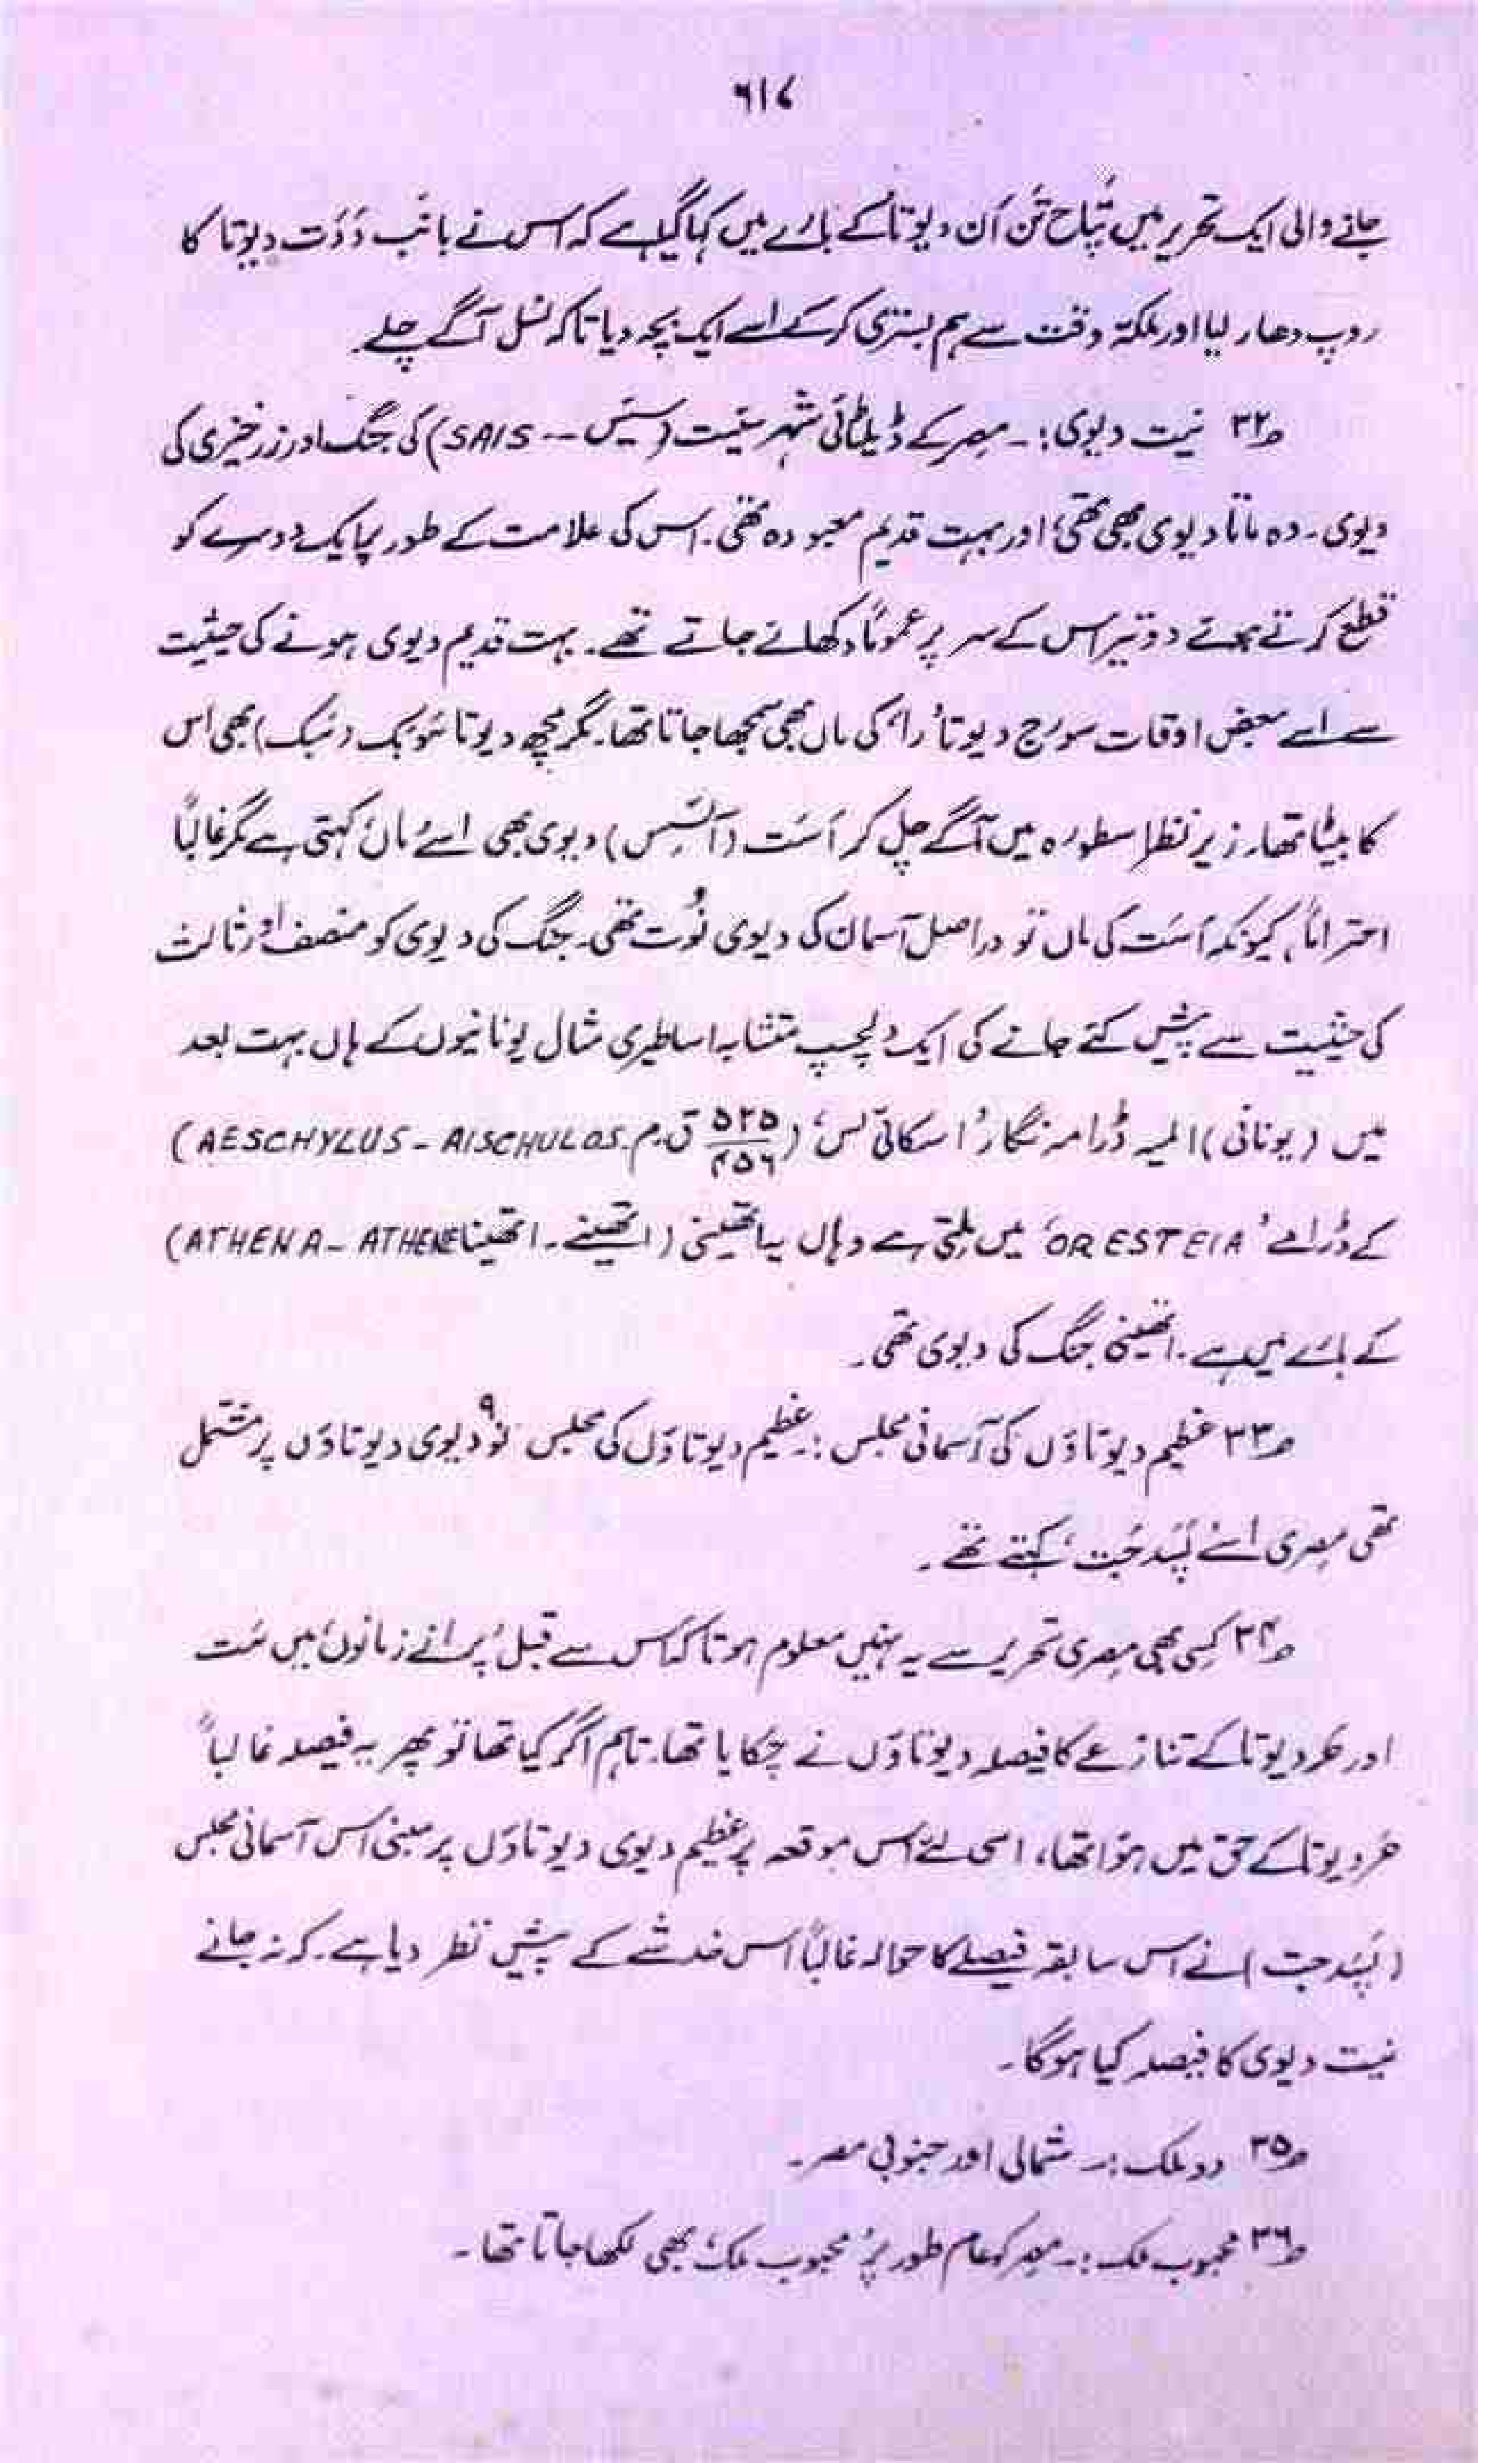 ۶۱۷
جانے والی ایک تحریر میں پتاح تُن اَن دیوتا کے بارے میں کہا گیا ہے کہ اس نے بانَب دَدَت دیوتا کا
روپ دھار لیا اور ملکۂ وقت سے ہم بستری کر کے اسے ایک بچہ دیا تاکہ نسل آگے چلے۔
۳۲ نیت دیوی:۔ مصر کے ڈیلٹائی شہر سَئیت (سَیِّس -- SAIS) کی جنگ اور زرخیزی کی
دیوی۔ وہ ماتا دیوی بھی تھی، اور بہت قدیم معبودہ تھی۔ اس کی علامت کے طور پر ایک دوسرے کو
قطع کرتے ہوئے دو تیر اس کے سر پر عموماً دکھائے جاتے تھے۔ بہت قدیم دیوی ہونے کی حیثیت
سے اسے بعض اوقات سورج دیوتا ’را‘ کی ماں بھی سمجھا جاتا تھا۔ مگرمچھ دیوتا سَوبک (سَبک) بھی اس
کا بیٹا تھا۔ زیر نظر اسطورہ میں آگے چل کر اَسَت (آئسِس) دیوی بھی اسے ’ماں‘ کہتی ہے مگر غالباً
احتراماً، کیونکہ اَسَت کی ماں تو دراصل آسمان کی دیوی نُوت تھی۔ جنگ کی دیوی کو منصف اور ثالث
کی حیثیت سے پیش کئے جانے کی ایک دلچسپ متشابہ اساطیری مثال یونانیوں کے ہاں بہت بعد
میں (یونانی) المیہ ڈرامہ نگار ’اسکائی لس‘ (۵۲۵/۴۵۶ ق۔م۔ AESCHYLUS - AISCHULOS)
کے ڈرامے ’ORESTEIA‘ میں ملتی ہے وہاں یہ اتھینی (اتھینے۔ اتھینا ATHENA - ATHENE)
کے بارے میں ہے۔ اتھینی جنگ کی دیوی تھی۔
۳۳ عظیم دیوتاؤں کی آسمانی مجلس:۔ عظیم دیوتاؤں کی مجلس نو۹ دیوی دیوتاؤں پر مشتمل
تھی مصری اسے ’پَسَدجَت‘ کہتے تھے۔
۳۴ کسی بھی مصری تحریر سے یہ نہیں معلوم ہوتا کہ اس سے قبل ’پرانے زمانوں‘ میں سَت
اور حَر دیوتا کے تنازعے کا فیصلہ دیوتاؤں نے چکایا تھا۔ تاہم اگر کیا تھا تو پھر یہ فیصلہ غالباً
حَر دیوتا کے حق میں ہوا تھا، اسی لئے اس موقعہ پر عظیم دیوی دیوتاؤں پر مبنی اس آسمانی مجلس
(پَسَدجت) نے اس سابقہ فیصلے کا حوالہ غالباً اس خدشے کے پیش نظر دیا ہے۔ کہ نہ جانے
نیت دیوی کا فیصلہ کیا ہوگا۔
۳۵ دو ملک:۔ شمالی اور جنوبی مصر۔
۳۶ محبوب ملک:۔ مصر کو عام طور پر ’محبوب ملک‘ بھی لکھا جاتا تھا۔